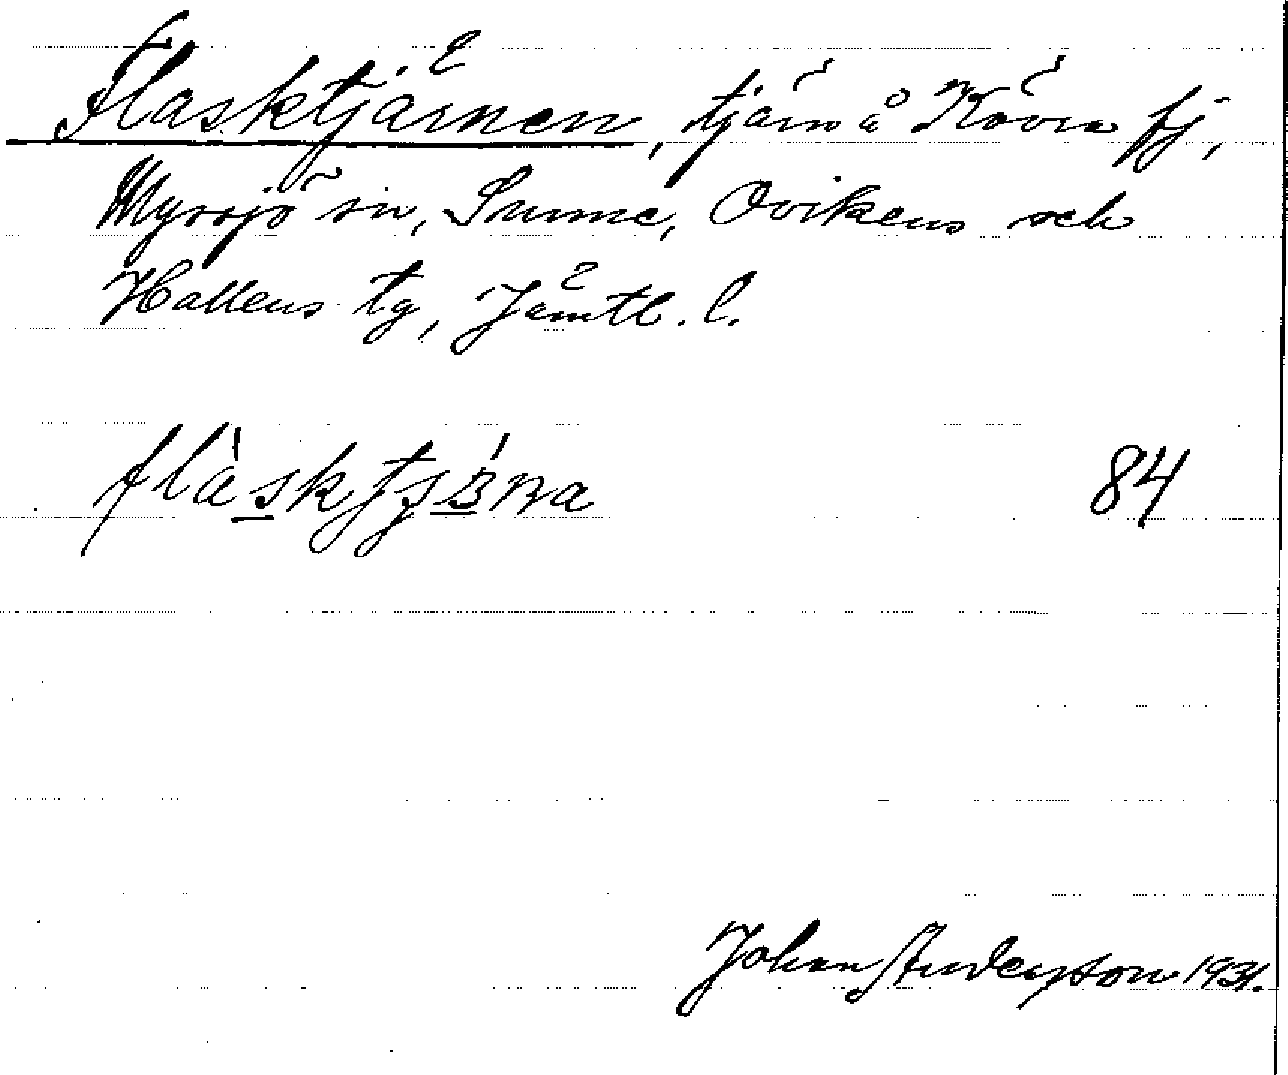 Flasktjärnen, tjärn å Kövra fj,
Myssjö sn, Sunne, Ovikens och
Hallens tg, Jämtl. l.
84
Johan Anderson 1931.